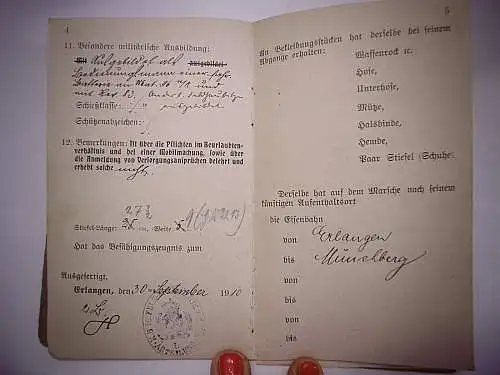 4
11. Besondere militärische Ausbildung:
Mit Ausgebildet als ausgebildet
Bedienungsmann einer
und
mit
ausgebildet
Schießklasse: /
Schützenabzeichen: /
12. Bemerkungen: Ist über die Pflichten im Beurlaubten-
verhältnis und bei einer Mobilmachung, sowie über
die Anmeldung von Versorgungsansprüchen belehrt und
erhebt solche nicht.
27 ½
Stiefel-Länge: cm, Weite
Hat das Befähigungszeugnis zum
Ausgefertigt.
Erlangen, den 30. September 1910
5
An Bekleidungsstücken hat derselbe bei seinem
Abgange erhalten:
Waffenrock ec.
Hose,
Unterhose,
Mütze,
Halsbinde,
Hemde,
Paar Stiefel (Schuhe)
Derselbe hat auf dem Marsche nach seinem
künftigen Aufenthaltsort
die Eisenbahn
von Erlangen
bis Münchberg
von
bis
von
bis